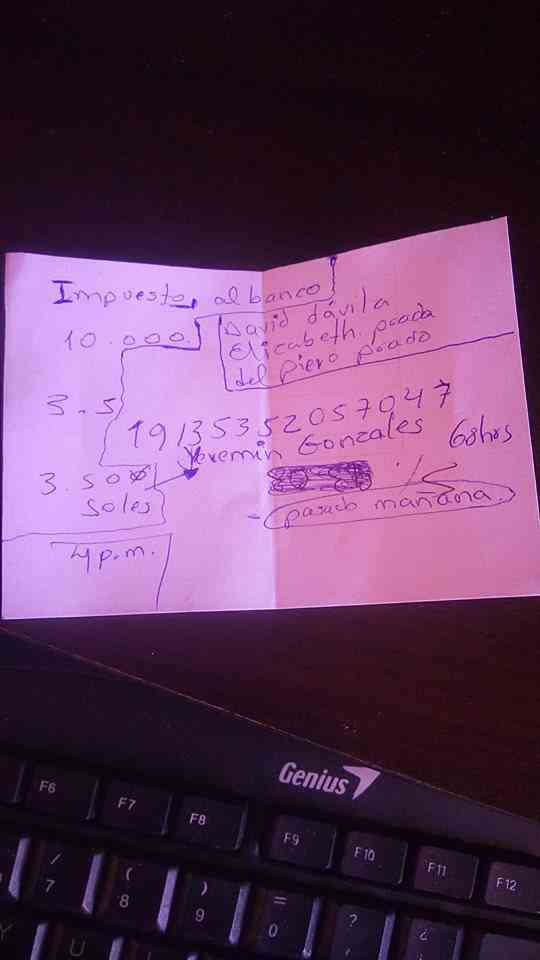 Impuesto, al banco
David dávila
10.000.
Elizabeth prada
del piero prado
3.5
19135352057047
Yeremin Gonzales
68hrs
3.500
soles
pasado mañana.
4 p.m.
Genius
F6 F7 F8 F9 F10 F11 F12
/ 7 ( 8 ) 9 = 0 ? ' ¿ ¡
Y U